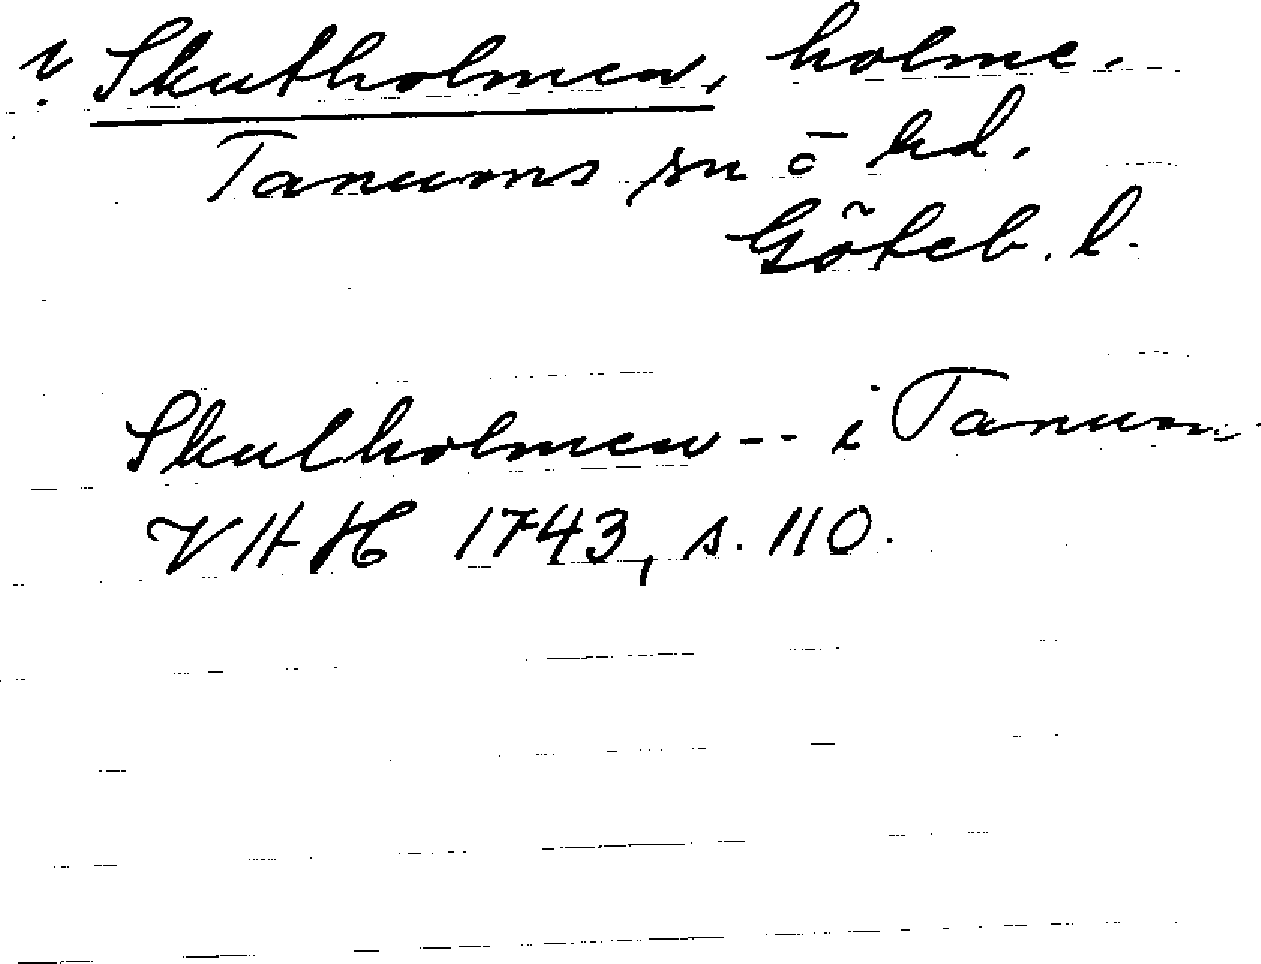 ? Skutholmen, holme.
Tanums sn o hd.
Göteb. l.
Skulholmen -- i Tanum
VHH 1743, s. 110.